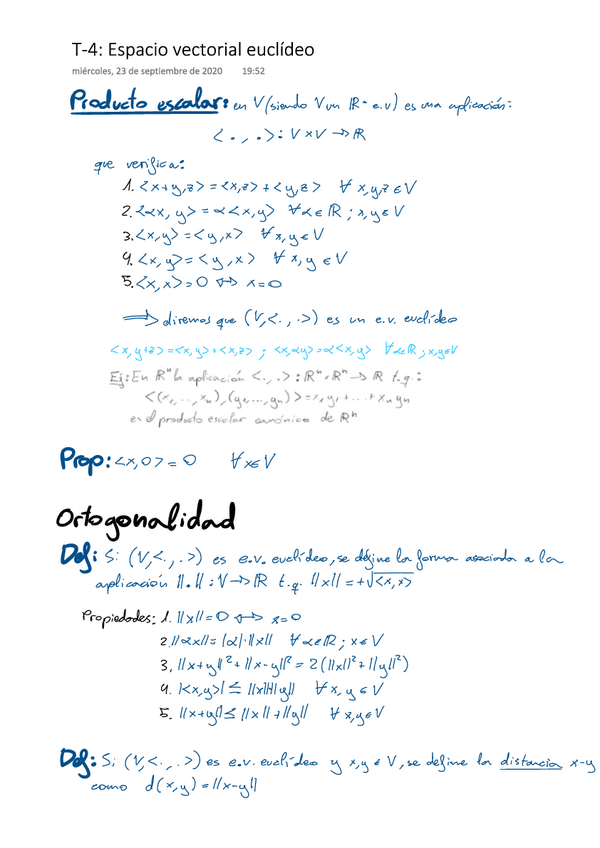 T-4: Espacio vectorial euclídeo
miércoles, 23 de septiembre de 2020 19:52
Producto escalar: en V (siendo V un ℝ-e.v) es una aplicación:
<.,.>: V×V → ℝ
que verifica:
1. <x+y,z> = <x,z> + <y,z> ∀ x,y,z ∈ V
2. <αx, y> = α<x,y> ∀ α ∈ ℝ ; x,y ∈ V
3. <x,y> = <y,x> ∀ x,y ∈ V
4. <x,y> = <y,x> ∀ x,y ∈ V
5. <x,x> = 0 ⇔ x=0
⟹ diremos que (V,<.,.>) es un e.v. euclídeo
<x,y+z> = <x,y> + <x,z> ; <x,αy> = α<x,y> ∀ α∈ℝ ; x,y∈V
Ej: En ℝⁿ la aplicación <.,.>: ℝⁿ×ℝⁿ → ℝ t.q.:
<(x₁,...,xₙ),(y₁,...,yₙ)> = x₁y₁+...+xₙyₙ
es el producto escalar canónico de ℝⁿ
Prop: <x,0> = 0 ∀ x∈V
Ortogonalidad
Def: Si (V,<.,.>) es e.v. euclídeo, se define la forma asociada a la
aplicación ||.||: V → ℝ t.q. ||x|| = +√<x,x>
Propiedades: 1. ||x|| = 0 ⇔ x=0
2. ||αx|| = |α|·||x|| ∀ α∈ℝ ; x∈V
3. ||x+y||² + ||x-y||² = 2(||x||² + ||y||²)
4. |<x,y>| ≤ ||x||·||y|| ∀ x,y ∈ V
5. ||x+y|| ≤ ||x|| + ||y|| ∀ x,y∈V
Def: Si (V,<.,.>) es e.v. euclídeo y x,y ∈ V, se define la distancia x-y
como d(x,y) = ||x-y||